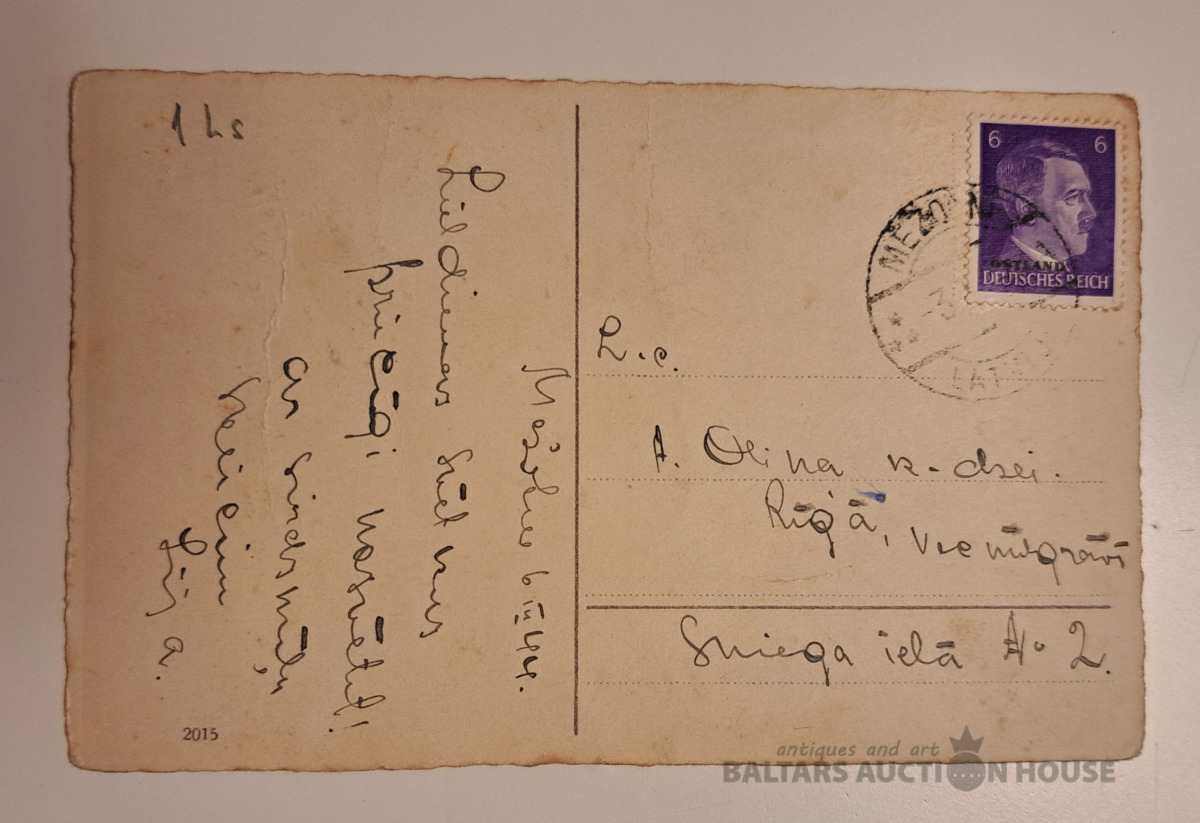 1 Ls
Mežotne 6 III 44.
Lieldienas svētkus
priecīgi nosvētīt!
ar sirdsmīļu
sveicienu
Jūs A.
2015
6 6
OSTLAND
DEUTSCHES REICH
MEŽO
3
LAT
L. c.
A. Oliņa k-dzei.
Rīgā, Vecmīlgrāvī
Sniega ielā № 2.
antiques and art
BALTARS AUCTION HOUSE